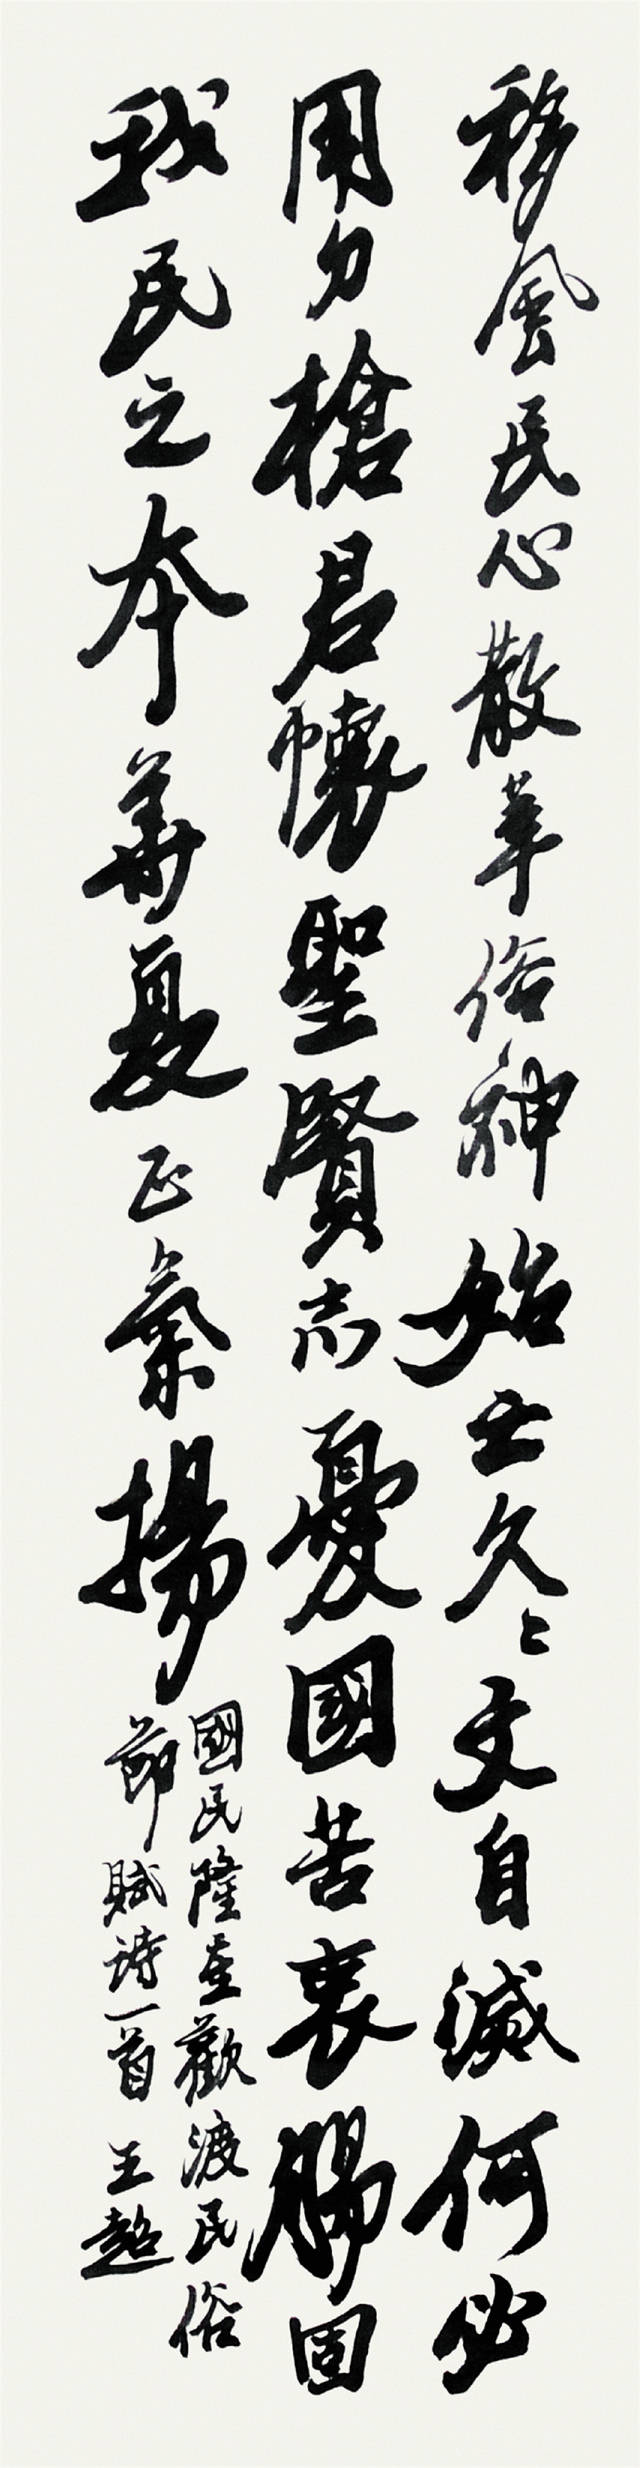 移風民心散革俗神始亡久〻文自滅何必
用刀槍君懷聖賢志憂國苦衷腸固
我民之本華夏正氣揚
國民隆重歡渡民俗
節賦詩一首 王超